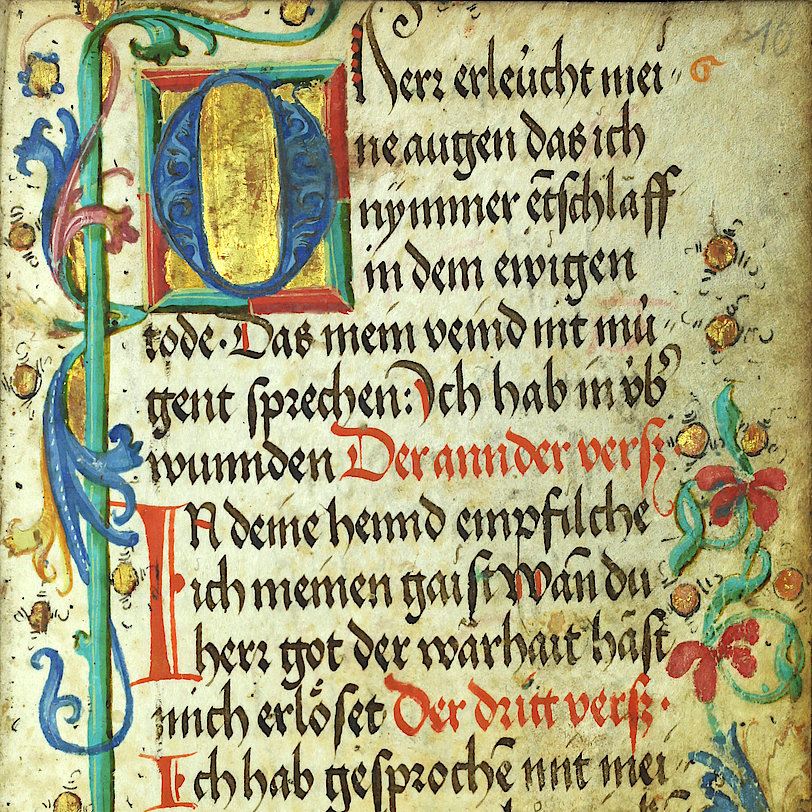 O herr erleücht mei-
ne augen das ich
nymmer ētschlaff
in dem ewigen
tode. Das mein veind nit mü-
gent sprechen: Ich hab in vb̾
wunnden Der annder versz.
IN deine hennd empfilche
ich meinen gaist Wān du
herr got der wārhait hāst
mich erlöset Der dritt versz.
Ich hab gesprochē mit mei